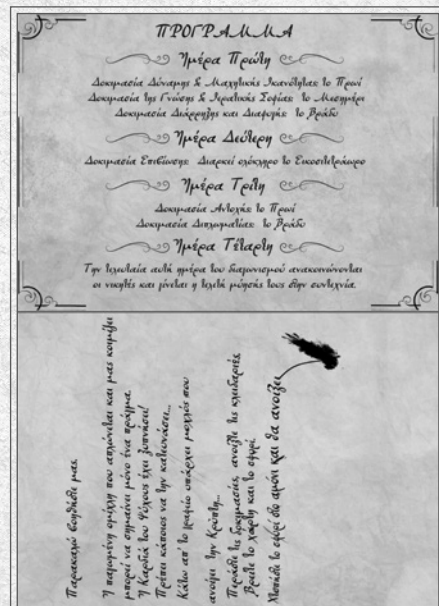 ΠΡΟΓΡΑΜΜΑ
Ημέρα Πρώτη
Δοκιμασία Δύναμης & Μαχητικής Ικανότητας: το Πρωί
Δοκιμασία της Γνώσης & Ιερατικής Σοφίας: το Μεσημέρι
Δοκιμασία Διάρρηξης και Διαφυγής: το Βράδυ
Ημέρα Δεύτερη
Δοκιμασία Επιβίωσης: Διαρκεί ολόκληρο το Εικοσιτετράωρο
Ημέρα Τρίτη
Δοκιμασία Αντοχής: το Πρωί
Δοκιμασία Διπλωματίας: το Βράδυ
Ημέρα Τέταρτη
Την τελευταία αυτή ημέρα του διαγωνισμού ανακοινώνονται
οι νικητές και γίνεται η τελετή μύησής τους στην συντεχνία.
Παρακαλώ βοηθήστε μας.
Η παγωμένη ομίχλη που απλώνεται και μας κοιμίζει
μπορεί να σημαίνει μόνο ένα πράγμα.
Η Καρδιά του Ψύχους έχει ξυπνήσει!
Πρέπει κάποιος να την κατευνάσει...
Κάτω απ' το γραφείο υπάρχει μοχλός που
ανοίγει την Κρύπτη...
Περάστε τις δοκιμασίες, ανοίξτε τις κλειδαριές,
Βρείτε το χάρτη και το σφυρί.
Χτυπήστε το σφυρί στο αμόνι και θα ανοίξει